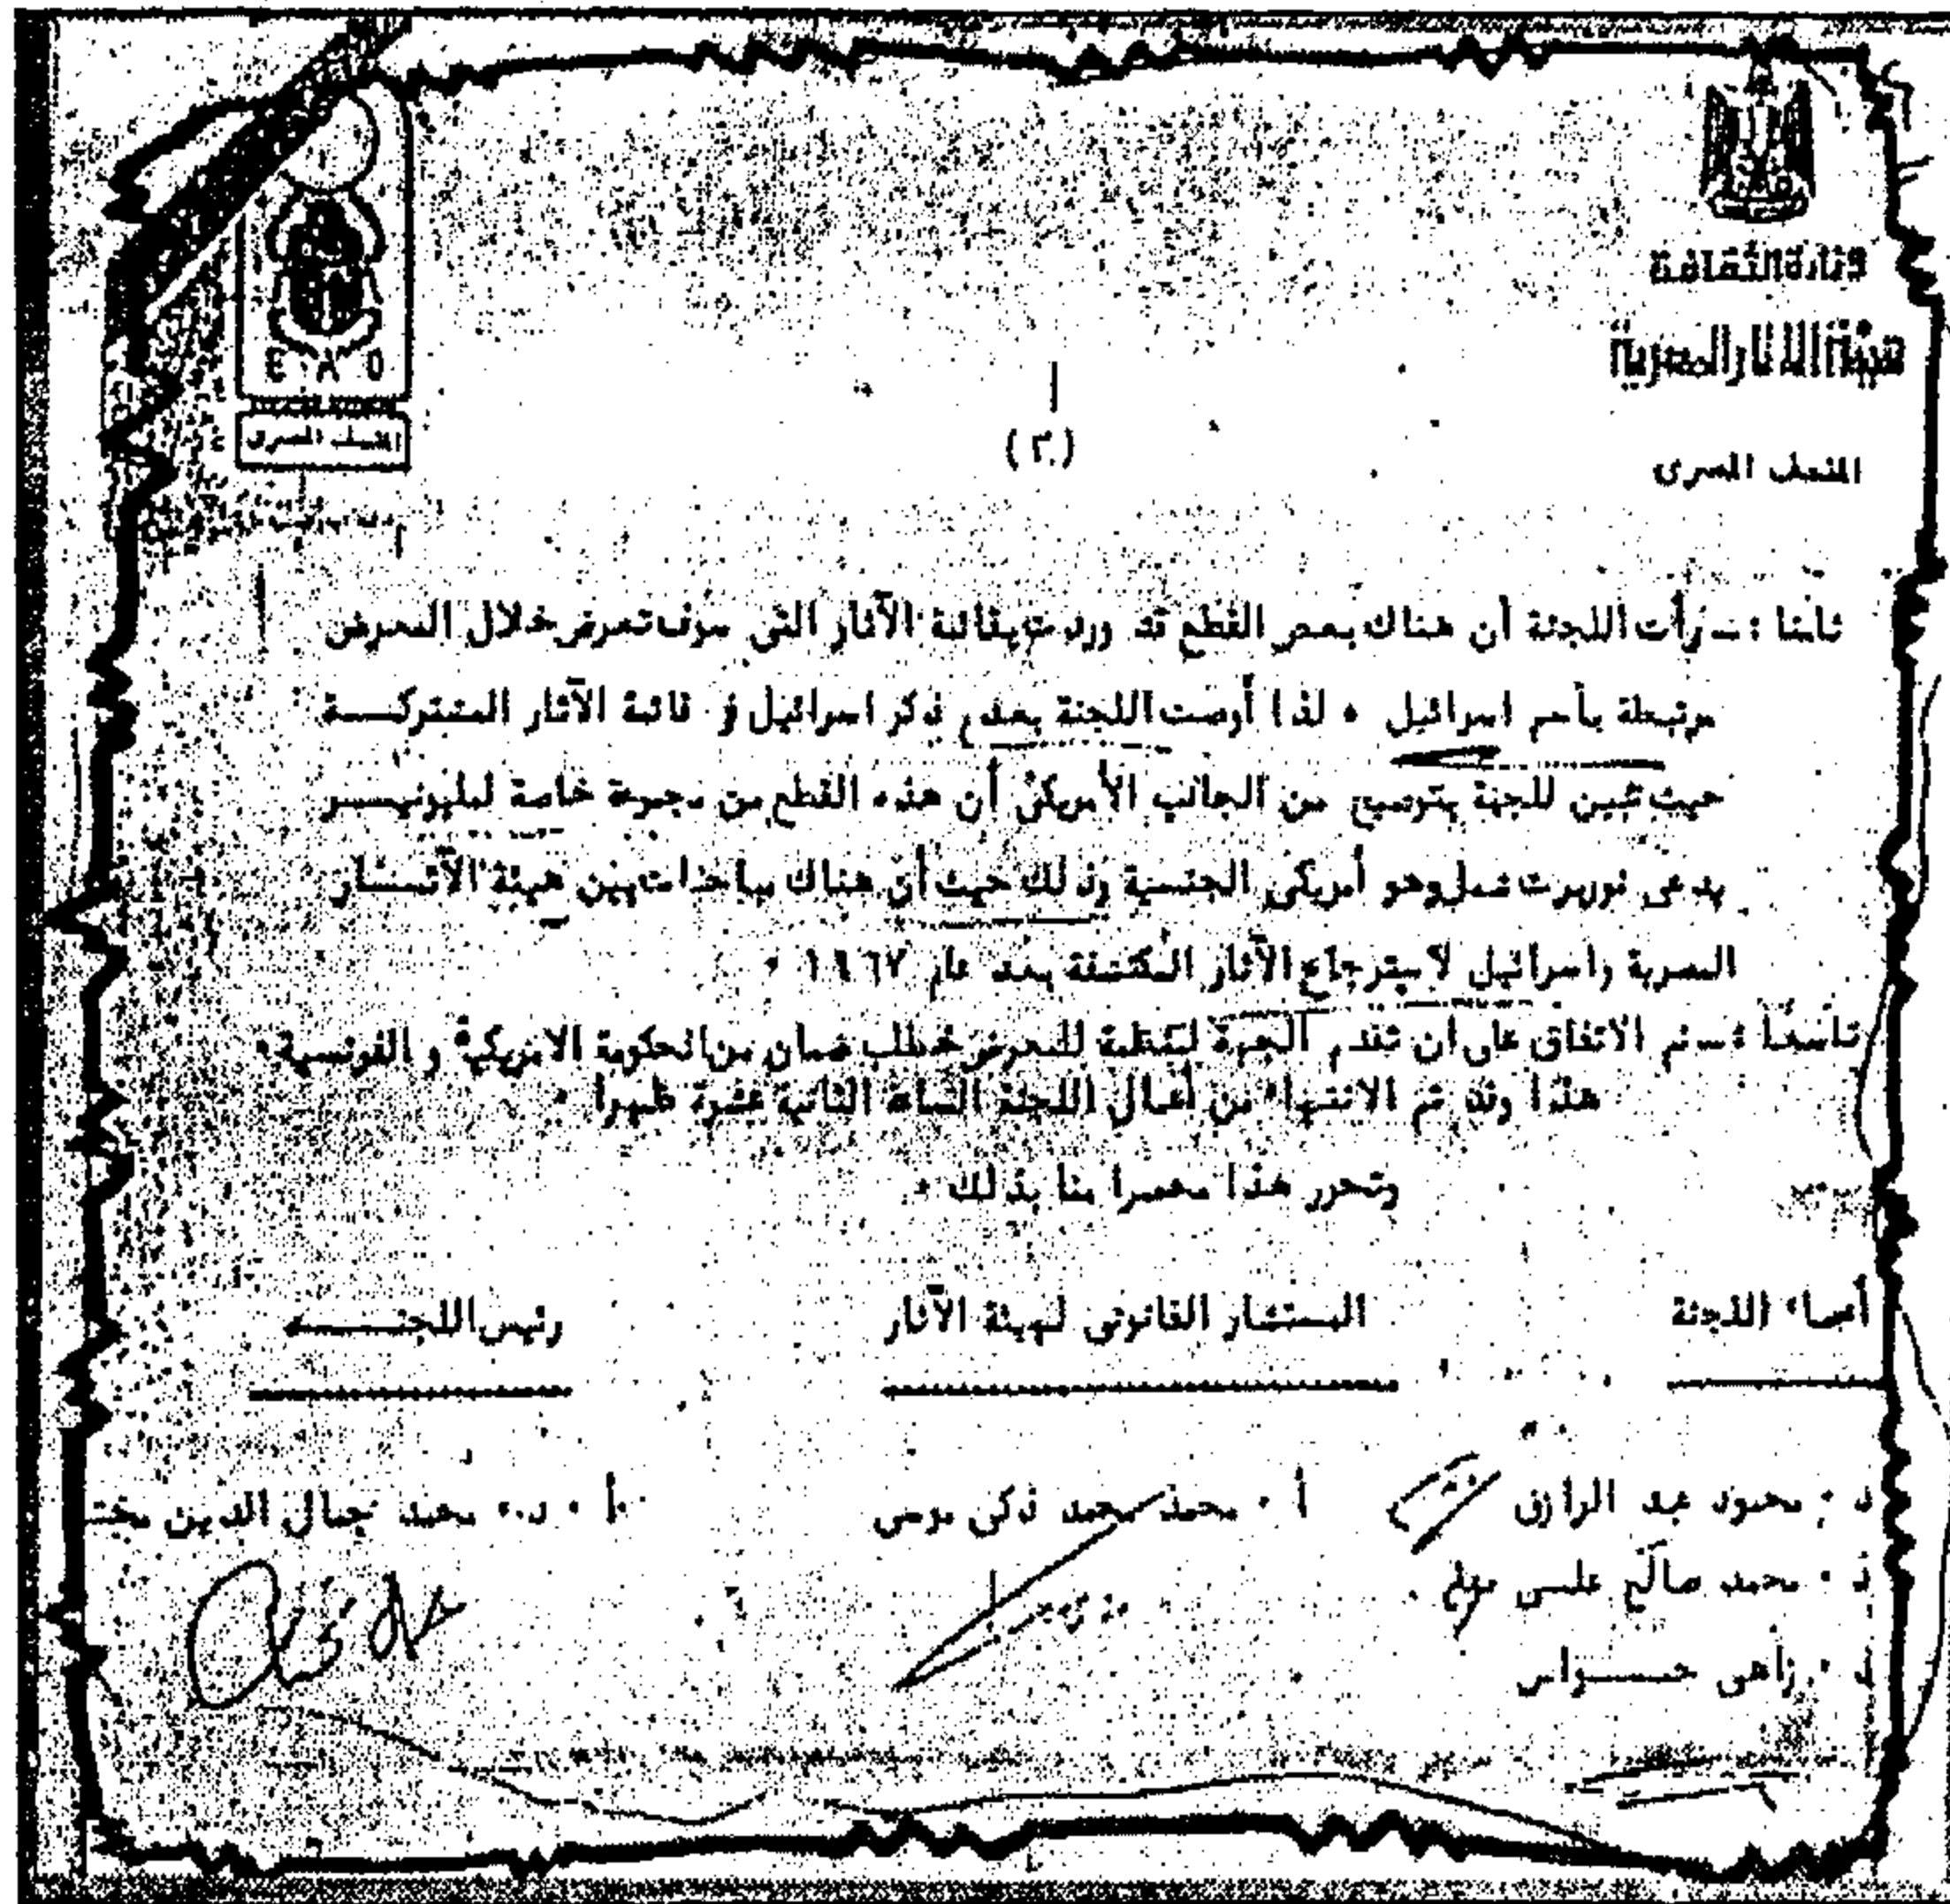 وزارة الثقافة
هيئة الآثار المصرية
المتحف المصرى
E A O
المتحف المصرى
(٣)
ثامنا : ــ رأت اللجنة أن هناك بعض القطع قد وردت بقائمة الآثار التى سوف تعرض خلال المعرض
مرتبطة بأسم اسرائيل ٠ لذا أوصت اللجنة بعدم ذكر اسرائيل فى قائمة الآثار المشتركـــة
حيث تبين للجنة بتوضيح من الجانب الأمريكى أن هذه القطع من مجموعة خاصة لمليونيـــر
يدعى نوربرت شمل وهو أمريكى الجنسية وذلك حيث أن هناك مباحثات بين هيئة الآثـــار
المصرية واسرائيل لاسترجاع الآثار المكتشفة بعد عام ١٩٦٧ ٠
تاسعا : ــ تم الاتفاق على أن تقدم الجهة المنظمة للمعرض خطاب ضمان من الحكومة الامريكية و الفرنسية ٠
هذا وقد تم الانتهاء من أعمال اللجنة الساعة الثانية عشرة ظهرا ٠
وتحرر هذا محضرا منا بذلك ٠
أعضاء اللجنة
المستشار القانونى لهيئة الآثار
رئيس اللجنــــة
د ٠ محمود عبد الرازق
أ ٠ محمد محمد ذكى موسى
أ ٠ د ٠ محمد جمال الدين مختـ
د ٠ محمد صالح علـى
د ٠ زاهى حـــواس